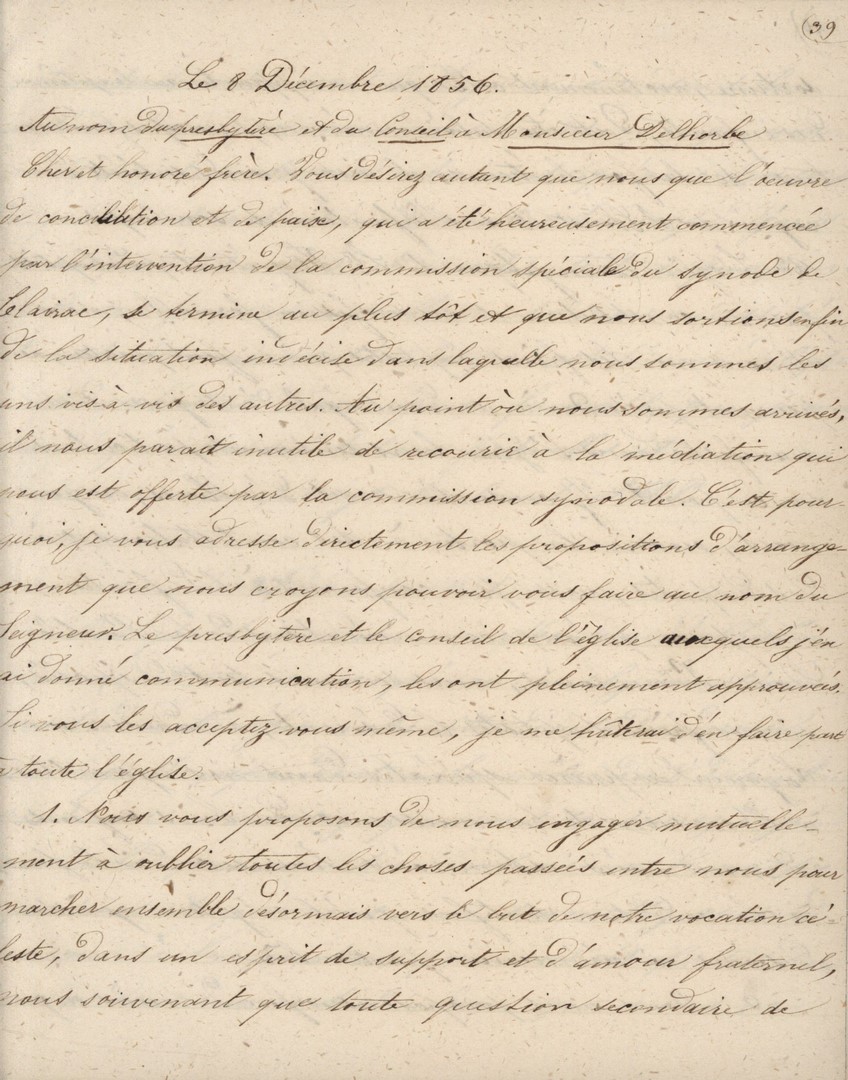 39
Le 8 Décembre 1856.
Au nom du presbytéré et du Conseil à Monsieur Delhorbe
Cher et honoré frère. Vous désirez autant que nous que l'oeuvre
de conciliation et de paix, qui a été heureusement commencée
par l'intervention de la commission spéciale du synode de
Clairac, se termine au plus tôt et que nous sortions enfin
de la situation indécise dans laquelle nous sommes les
uns vis à vis des autres. Au point où nous sommes arrivés,
il nous parait inutile de recourir à la médiation qui
nous est offerte par la commission synodale. C'est pour
quoi, je vous adresse directement les propositions d'arrange-
ment que nous croyons pouvoir vous faire au nom du
Seigneur. Le presbytère et le conseil de l'église auxquels j'en
ai donné communication, les ont pleinement approuvées.
Si vous les acceptez vous même, je me hâterai d'en faire part
à toute l'église.
1. Nous vous proposons de nous engager mutuelle-
ment à oublier toutes les choses passées entre nous pour
marcher ensemble désormais vers le but de notre vocation cé-
leste, dans un esprit de support et d'amour fraternel,
nous soivenant que toute question secondaire de